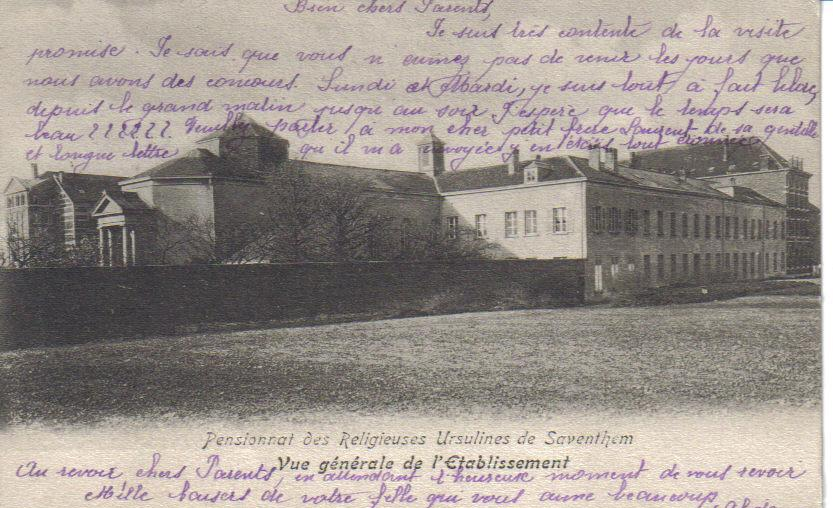 Bien chers Parents,
Je suis très contente de la visite
promise. Je sais que vous n'aimez pas de venir les jours que
nous avons des concours. Lundi et Mardi, je suis tout à fait libre,
depuis le grand matin jusqu'au soir. J'espère que le temps sera
beau ! ! ! ! ! ! Veuillez parler à mon cher petit frère Laurent de sa gentille
et longue lettre qu'il m'a envoyée j'en étais tout étonnée
Pensionnat des Religieuses Ursulines de Saventhem
Vue générale de l'Etablissement
Au revoir chers Parents, en attendant l'heureux moment de vous revoir
Mille baisers de votre fille qui vous aime beaucoup